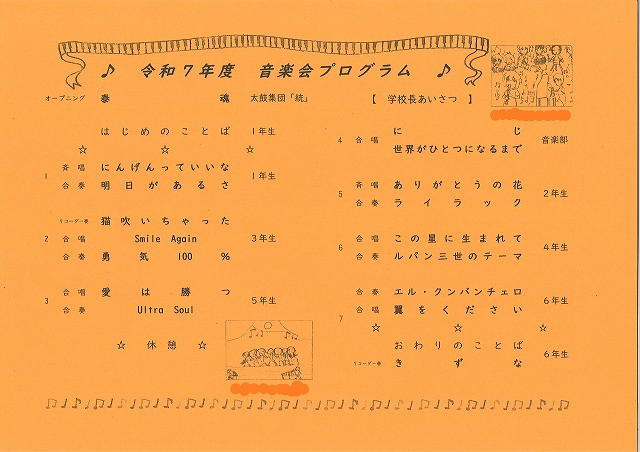 ♪ 令和7年度 音楽会プログラム ♪
オープニング 奏魂 太鼓集団「統」 【 学校長あいさつ 】
はじめのことば 1年生
☆ ☆ ☆
1 斉唱 にんげんっていいな 1年生
合奏 明日があるさ
リコーダー奏 猫吹いちゃった
2 合唱 Smile Again 3年生
合奏 勇気100%
3 合唱 愛は勝つ 5年生
合奏 Ultra Soul
☆ 休憩 ☆
4 合唱 にじ 音楽部
世界がひとつになるまで
5 斉唱 ありがとうの花 2年生
合奏 ライラック
6 合唱 この星に生まれて 4年生
合奏 ルパン三世のテーマ
7 合奏 エル・クンバンチェロ 6年生
合唱 翼をください
☆ ☆ ☆
おわりのことば 6年生
リコーダー奏 きずな